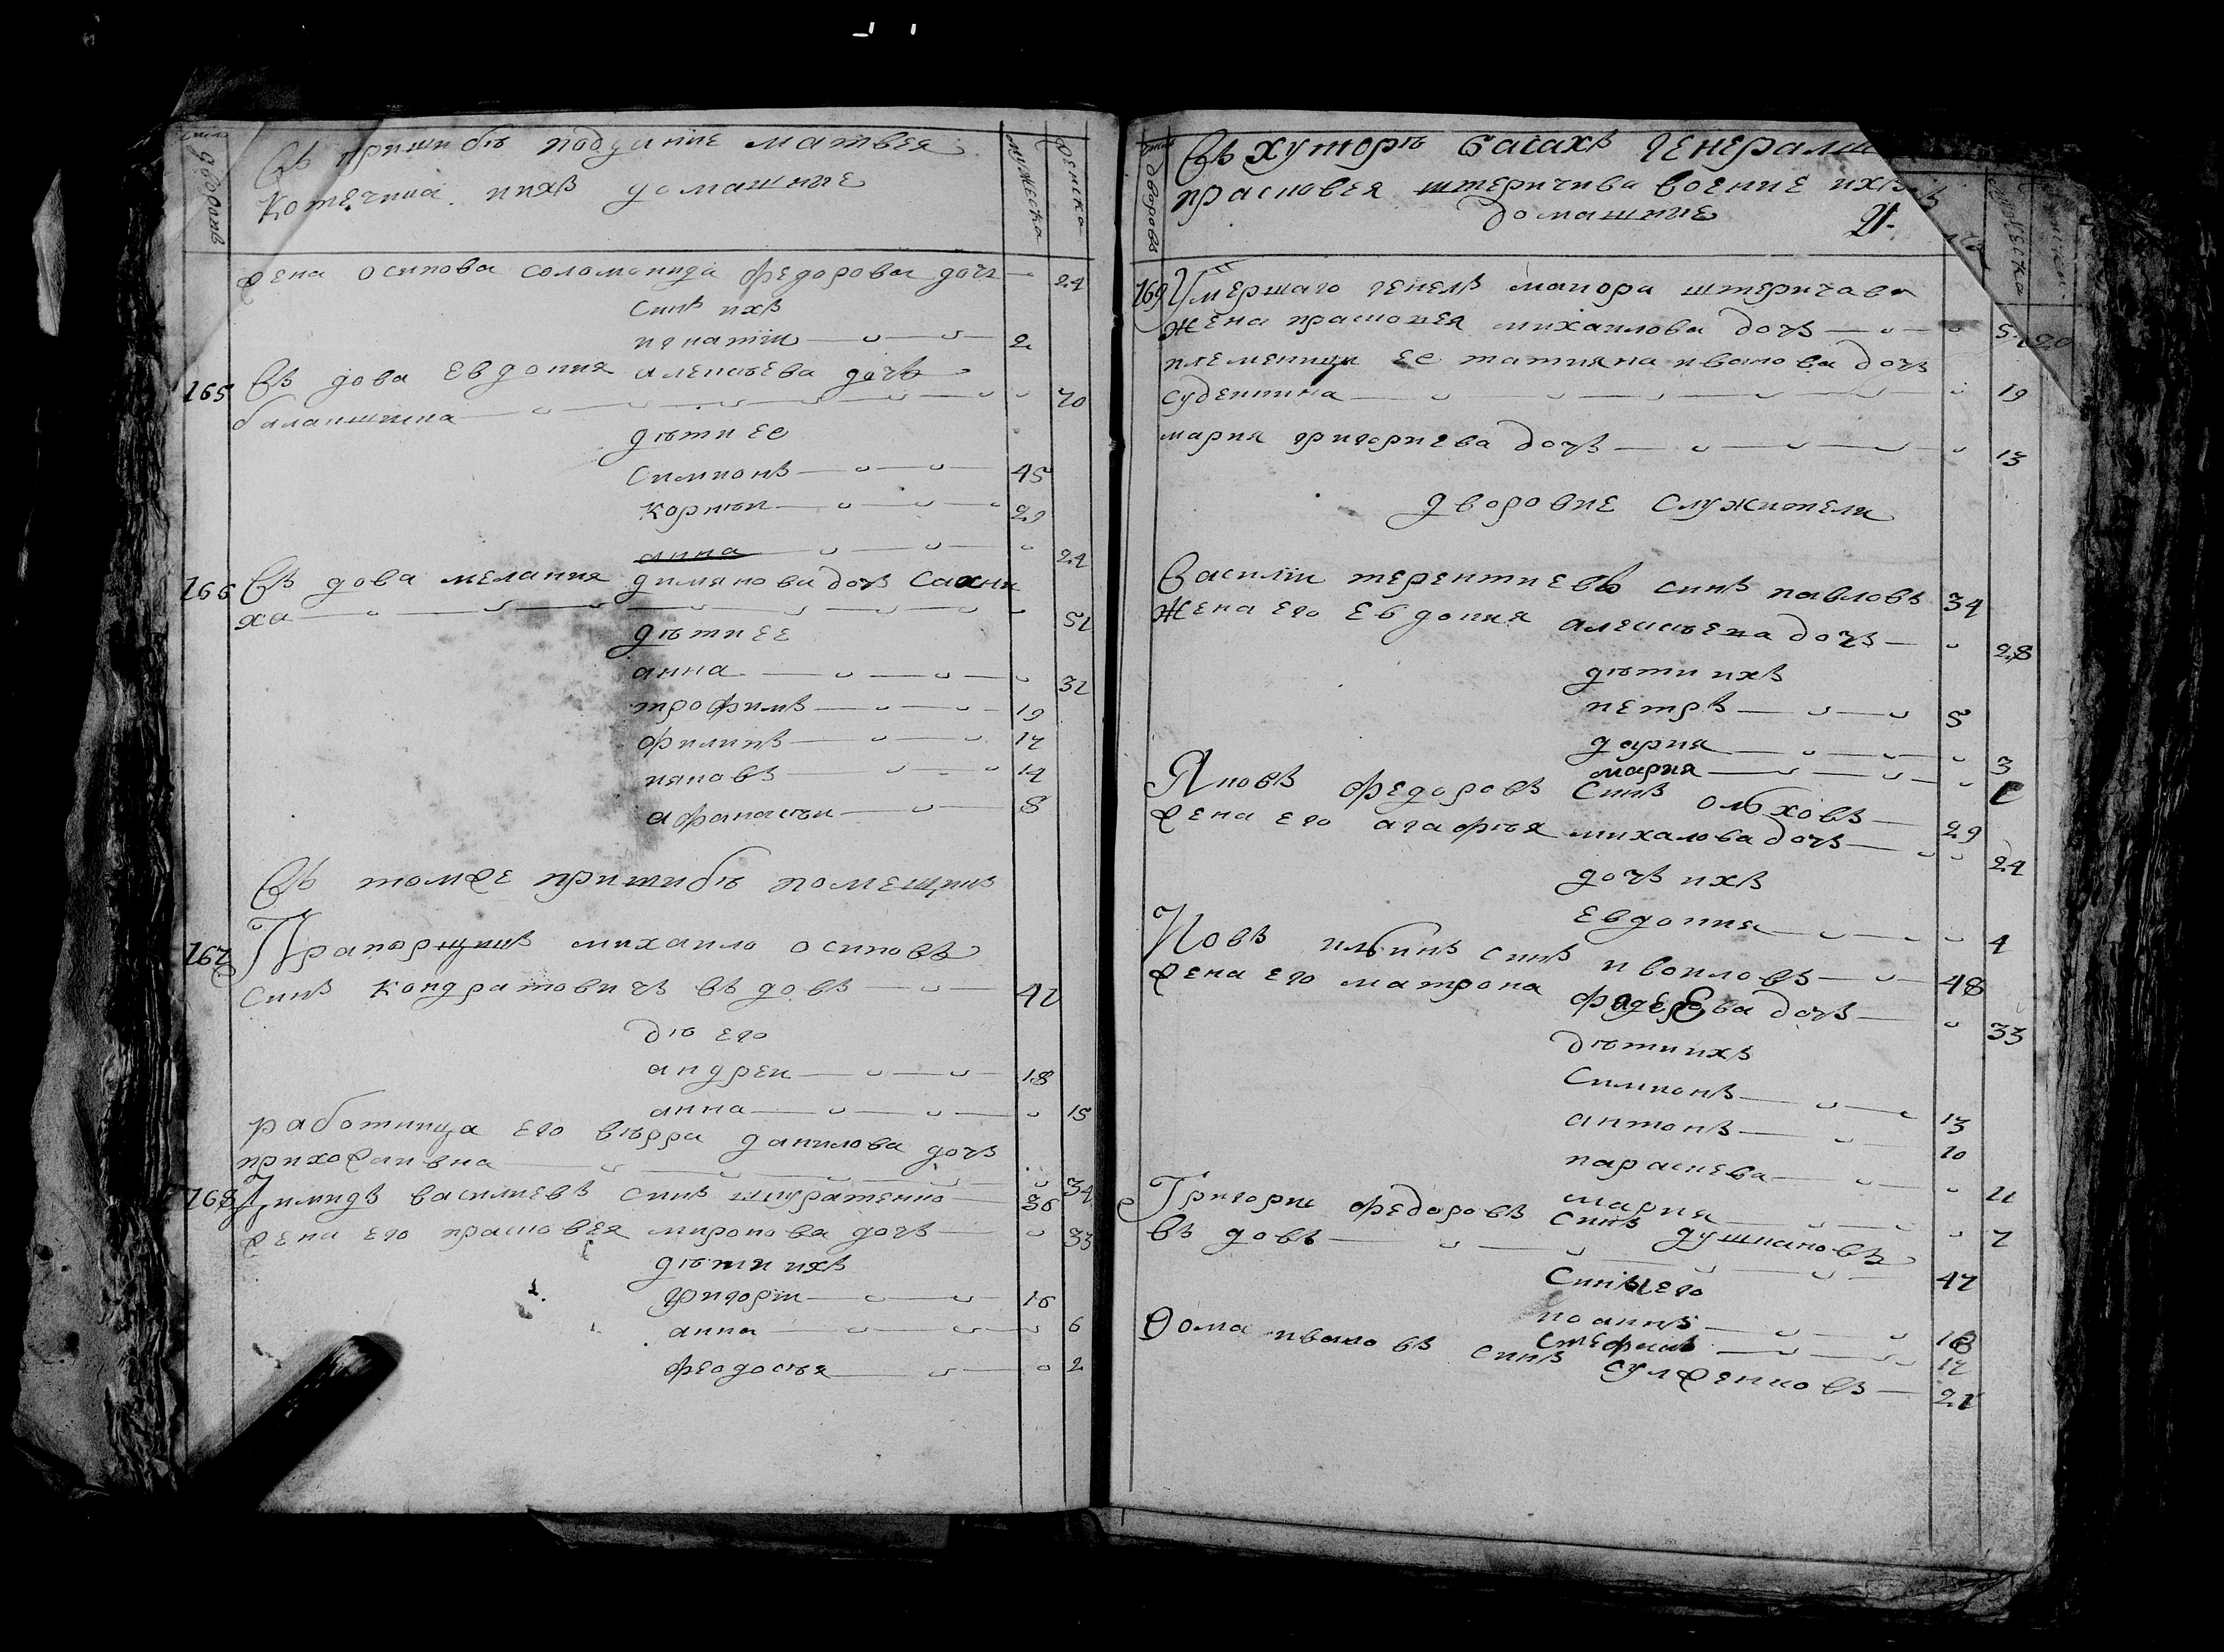 дворовъ
Въ пришибѣ поддание матвея
Котечина иихъ домашние
мужеска
женска
жена осипова соломанида федорова дочъ 24
синъ ихъ
игнатіи 2
165 Въ дова евдокия алексѣева дочъ
балакшиина 70
дѣти ее
Симионъ 45
корнѣи 29
анна 24
166 Въ дова мелания димянова дочъ Сахни
ха 51
дѣти ее
анна 31
трофимъ 19
филипъ 17
ияковъ 14
афанасѣи 8
Въ томже пришибѣ помещикъ
167 Прапорщикъ михаило осиповъ
синъ кондратовичъ въ довъ 41
дѣ его
андреи 18
анна 15
работница его вѣрра данилова дочъ
прихожаивна 34
168 Димидъ василиевъ синъ шкуратенко 36
жена его прасковея миронова дочъ 33
дѣти ихъ
григоріи 16
анна 6
феодосѣя 2
дворовъ
Въ хуторѣ Сасахъ генералш
прасковея штеричива воение ихъ
домашние
мужеска
169 Умершаго генелъ маиора штеричава
жена прасковея михаилова дочъ
племеници ее татияна иванова дочъ
суденкина 19
мария григориева дочъ 13
дворовие служители
Василіи терентиевъ синъ павловъ 34
жена его евдокия алексѣена дочъ 28
дѣти ихъ
петръ 5
дария 3
мария
Яковъ федоровъ синъ олховъ 29
жена его агафѣя михалова дочъ 24
дочъ ихъ
евдокия 4
Иовъ илинъ синъ иваиловъ 48
жена его матрона федорова дочъ 33
дѣти ихъ
Симионъ 13
антонъ 10
параскева 11
мария 7
Григории федоровъ синъ душкановъ
въ довъ 47
Синъ его
иоанъ 18
стефанъ 17
Фома ивановъ синъ сулженковъ 21